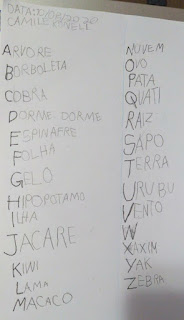 ARVORE
BORBOLETA
COBRA
DORME-DORME
ESPINAFRE
FOLHA
GELO
HIPOPOTAMO
ILHA
JACARE
KIWI
LAMA
MACACO
NUVEM
OVO
PATA
QUATI
RAIZ
SAPO
TERRA
URUBU
VENTO
W
XAXIM
YAK
ZEBRA